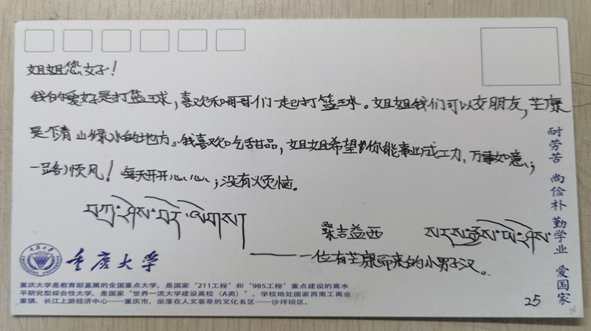 姐姐您好!
我的爱好是打篮球,喜欢和哥哥们一起打篮球。姐姐我们可以交朋友,芒康
是个青山绿水的地方。我喜欢吃甜品,姐姐希望你能事业成功,万事如意,
一路顺风!每天开开心心,没有烦恼。
བཀྲ་ཤིས་བདེ་ལེགས།
桑吉益西
——一位有芒康而来的小男子汉。
耐劳苦 尚俭朴 勤学业 爱国家
重庆大学
重庆大学是教育部直属的全国重点大学,是国家“211工程”和“985工程”重点建设的高水
平研究型综合性大学,是国家“世界一流大学建设高校(A类)”。学校地处国家西南工商业
重镇、长江上游经济中心——重庆市,坐落在人文荟萃的文化名区——沙坪坝区。
25